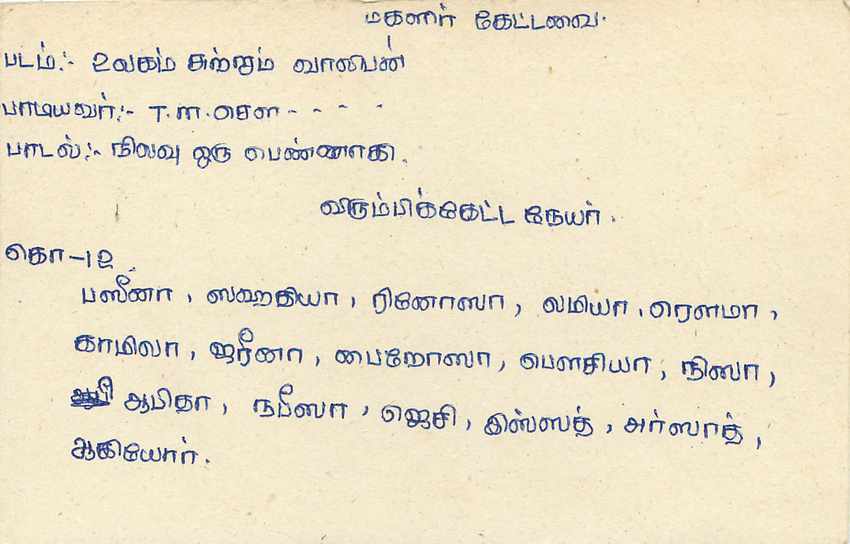 மகளிர் கேட்டவை.
படம்:- உலகம் சுற்றும் வாலிபன்
பாடியவர்:- T.M.சௌ- - - -
பாடல்:- நிலவு ஒரு பெண்ணாகி.
விரும்பிக்கேட்ட நேயர்.
கொ-12
பஸீனா, ஸஹதியா, ரினோஸா, லமியா, ரௌமா,
காமிலா, ஜரீனா, பைறோஸா, பௌசியா, நிஸா,
ஆபிதா, நபீஸா, ஜெசி, இஸ்ஸத், அர்ஸாத்,
ஆகியோர்.